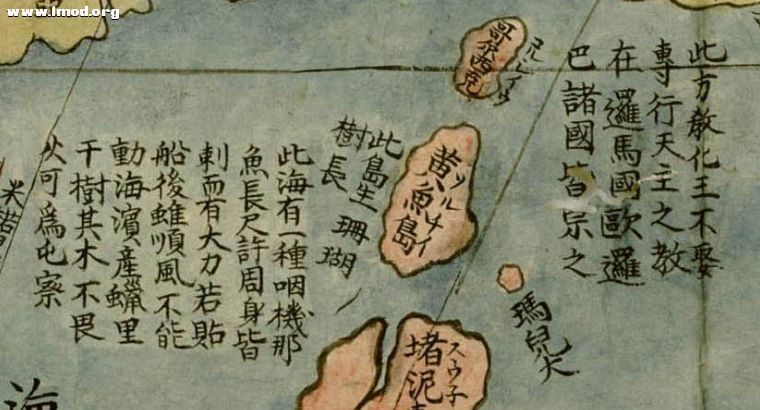 www.lmod.org
此方教化王不娶
專行天主之教
在邏馬國歐邏
巴諸國皆宗之
哥尔西克
黄魚島
此島生珊瑚
樹長
此海有一種咽機那
魚長尺許周身皆
刺而有大力若貼
船後雖順風不能
動海濱產蠟里
千樹其木不畏
火可爲屯寮
瑪兒大
スウ子
堵泥
海